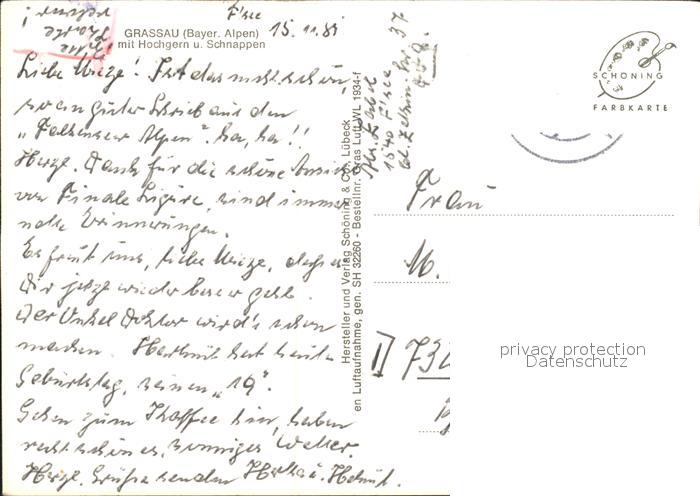 F'see
15.11.85
GRASSAU (Bayer. Alpen)
mit Hochgern u. Schnappen
Liebe Mieze! Ist das nicht schön,
so ein guter Schrieb aus den
"Falkenseer Alpen". ha, ha!!
Herzl. Dank für die schöne Ansicht
von Finale Ligure, sind immer
nette Erinnerungen.
Es freut uns, liebe Mieze, dass es
Dir jetzt wieder besser geht.
Der Onkel Doktor wird's schon
machen. Helmut hat heute
Geburtstag, seinen "19".
Gehen zum Kaffee hin, haben
recht schönes, sonniges Wetter.
Herzl. Grüße senden Hertha u. Helmut.
Hersteller und Verlag Schöning & Co., Lübeck
en Luftaufnahme, gen. SH 32260 - Bestellnr. Gras Luft WL 1934-f
1540 F'see
37
SCHÖNING
FARBKARTE
Frau
M.
privacy protection
Datenschutz